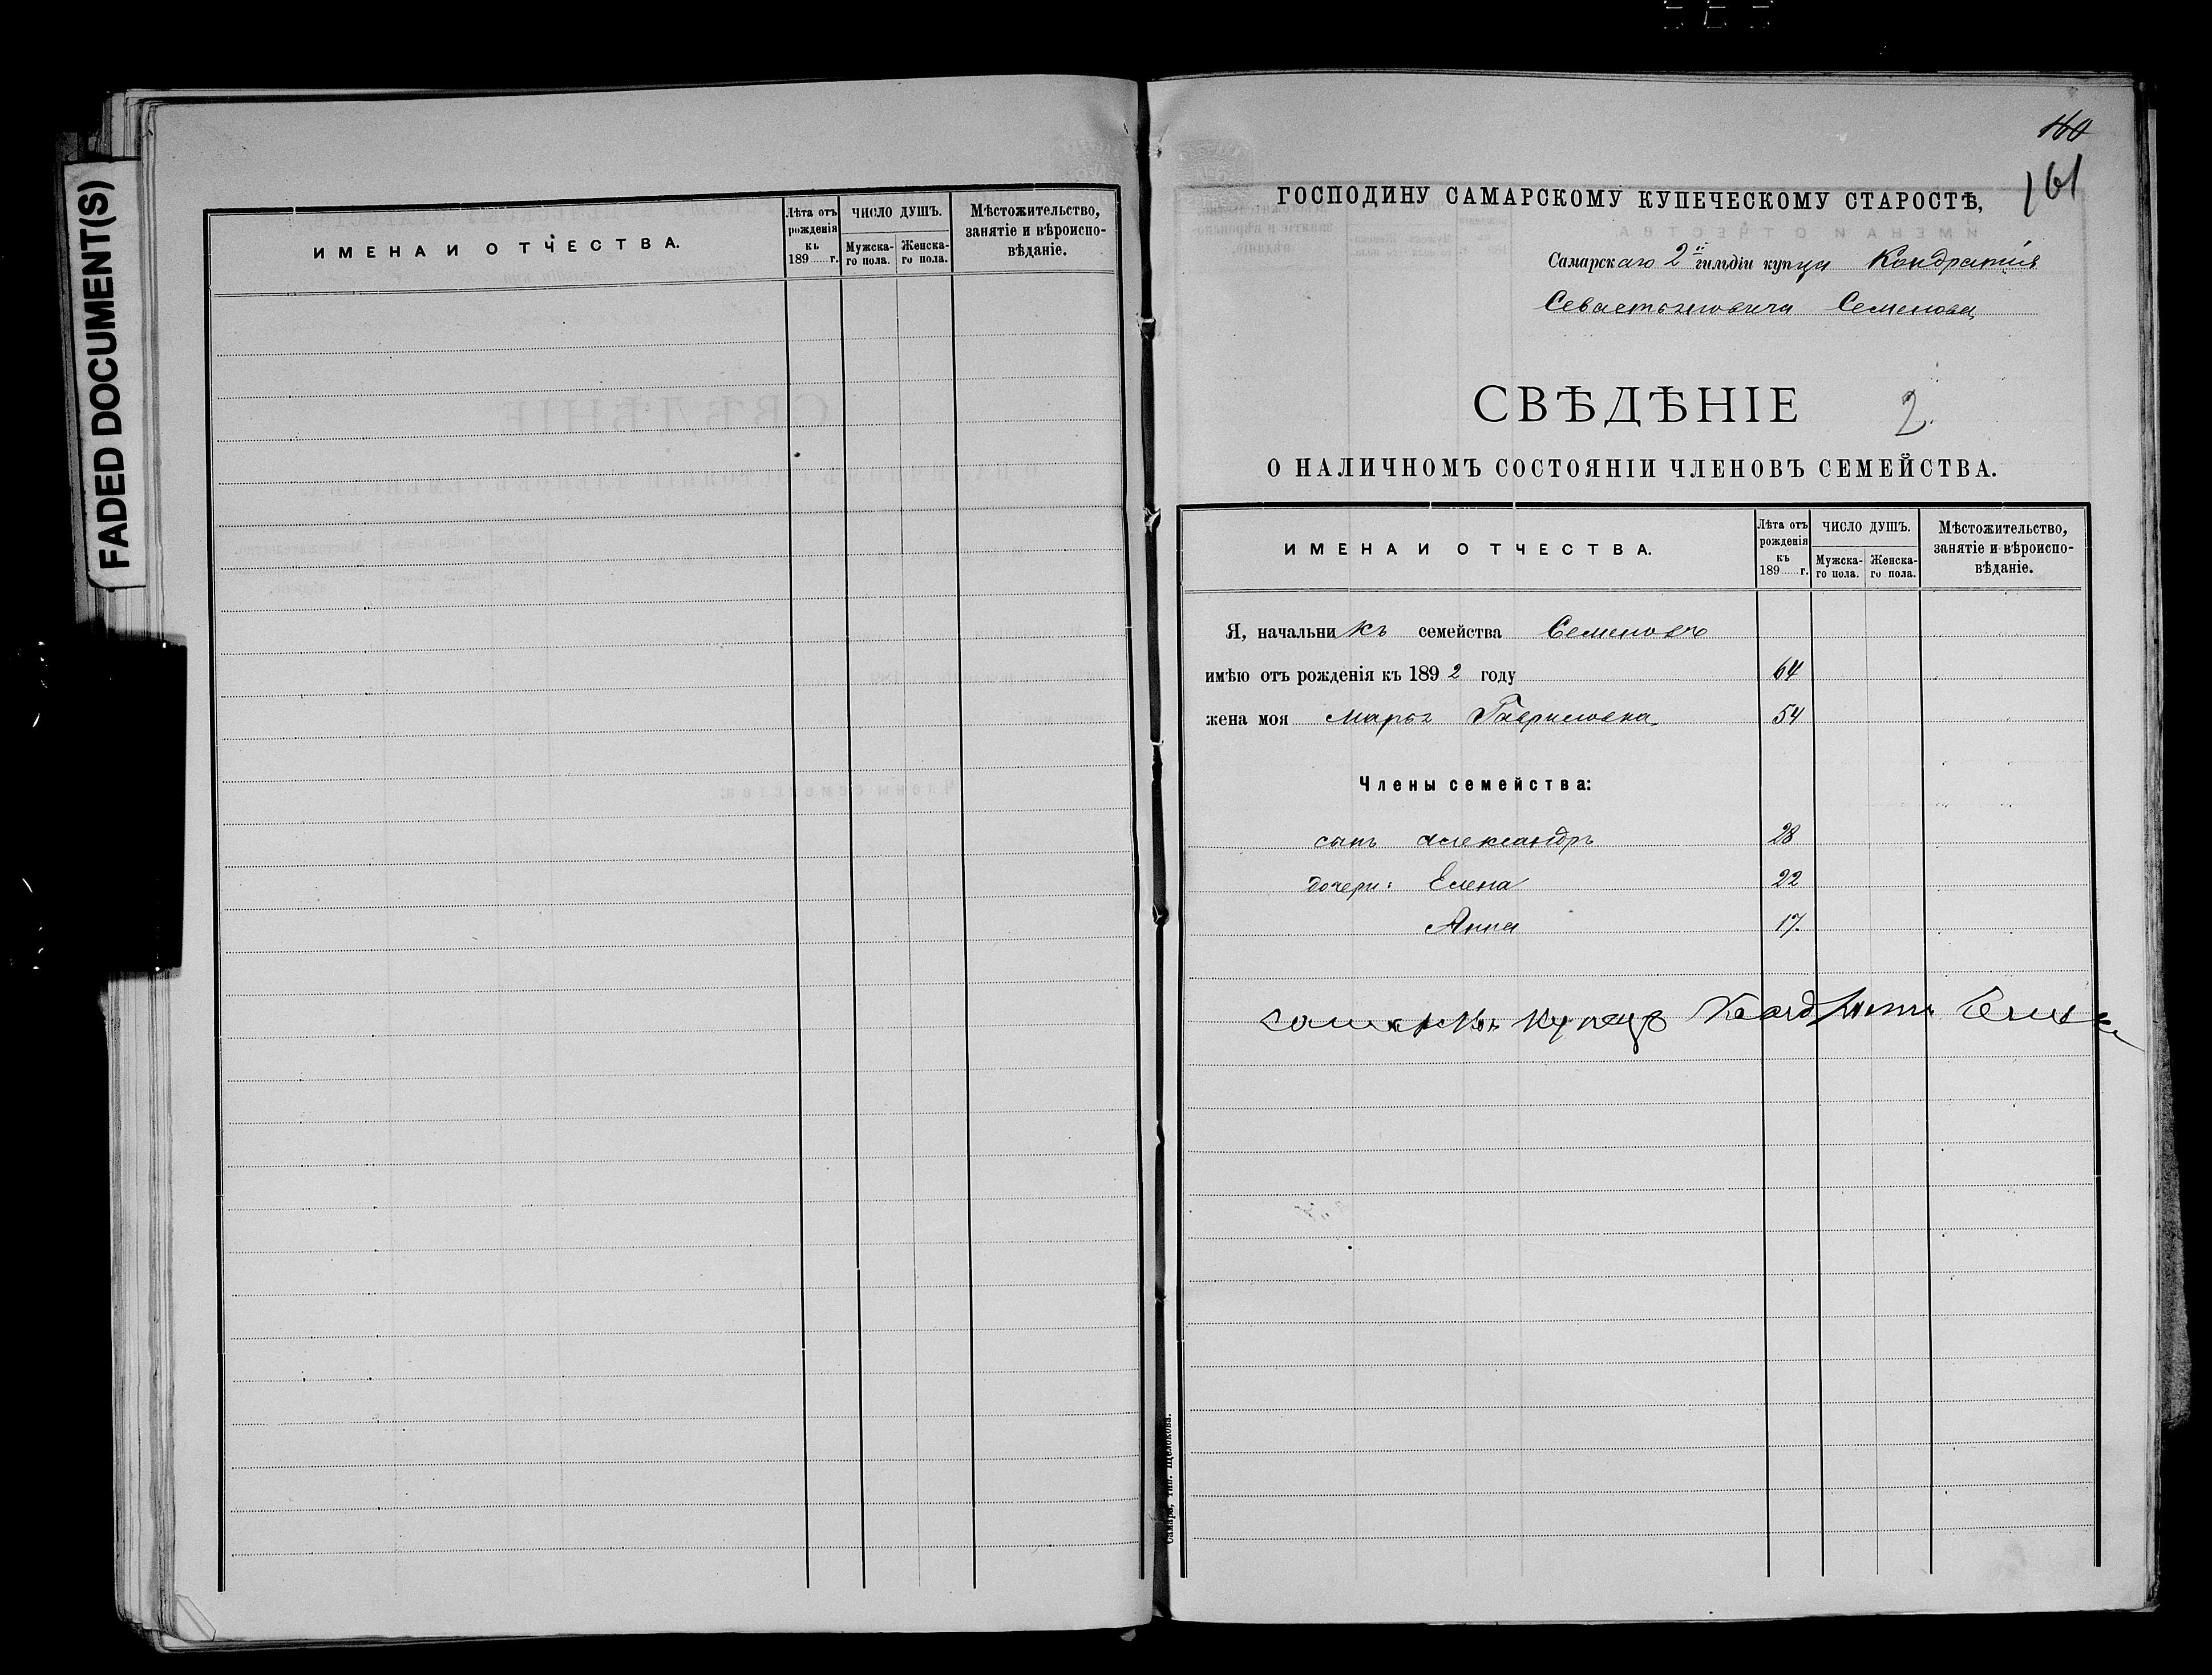 FADED DOCUMENT(S)
ИМЕНА И ОТЧЕСТВА.
Лѣта отъ рожденія къ 189 г.
ЧИСЛО ДУШЪ.
Мужска-го пола.
Женска-го пола.
Мѣстожительство, занятіе и вѣроиспо-вѣданіе.
160
161
ГОСПОДИНУ САМАРСКОМУ КУПЕЧЕСКОМУ СТАРОСТѢ,
Самарскаго 2й гильдіи купца Кондратія
Севастьяновича Семенова
СВѢДѢНІЕ 2
О НАЛИЧНОМЪ СОСТОЯНІИ ЧЛЕНОВЪ СЕМЕЙСТВА.
ИМЕНА И ОТЧЕСТВА.
Лѣта отъ рожденія къ 189 г.
ЧИСЛО ДУШЪ.
Мужска-го пола.
Женска-го пола.
Мѣстожительство, занятіе и вѣроиспо-вѣданіе.
Я, начальникъ семейства Семеновъ
имѣю отъ рожденія къ 1892 году 64
жена моя Марья Гавриловна 54
Члены семейства:
сынъ Александръ 28
дочери: Елена 22
Анна 17.
купецъ
Самара, Тип. Щелокова.